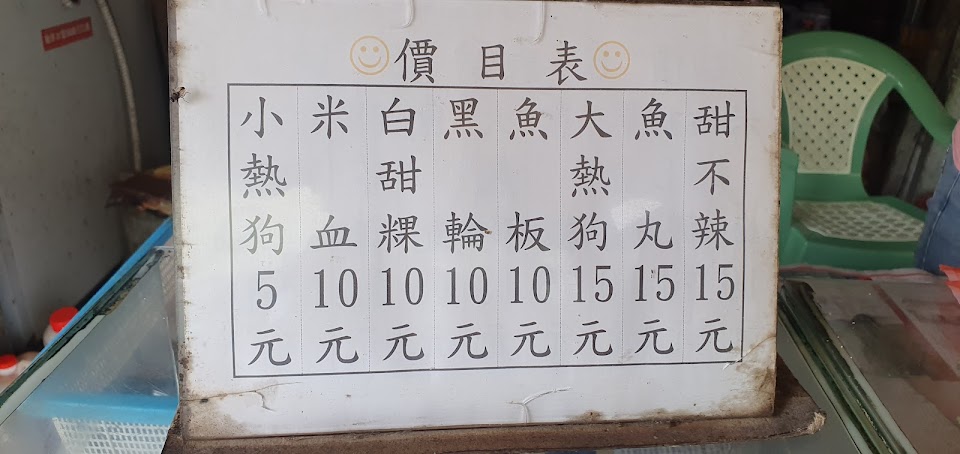 價目表
甜不辣15元
魚丸15元
大熱狗15元
魚板10元
黑輪10元
白甜粿10元
米血10元
小熱狗5元